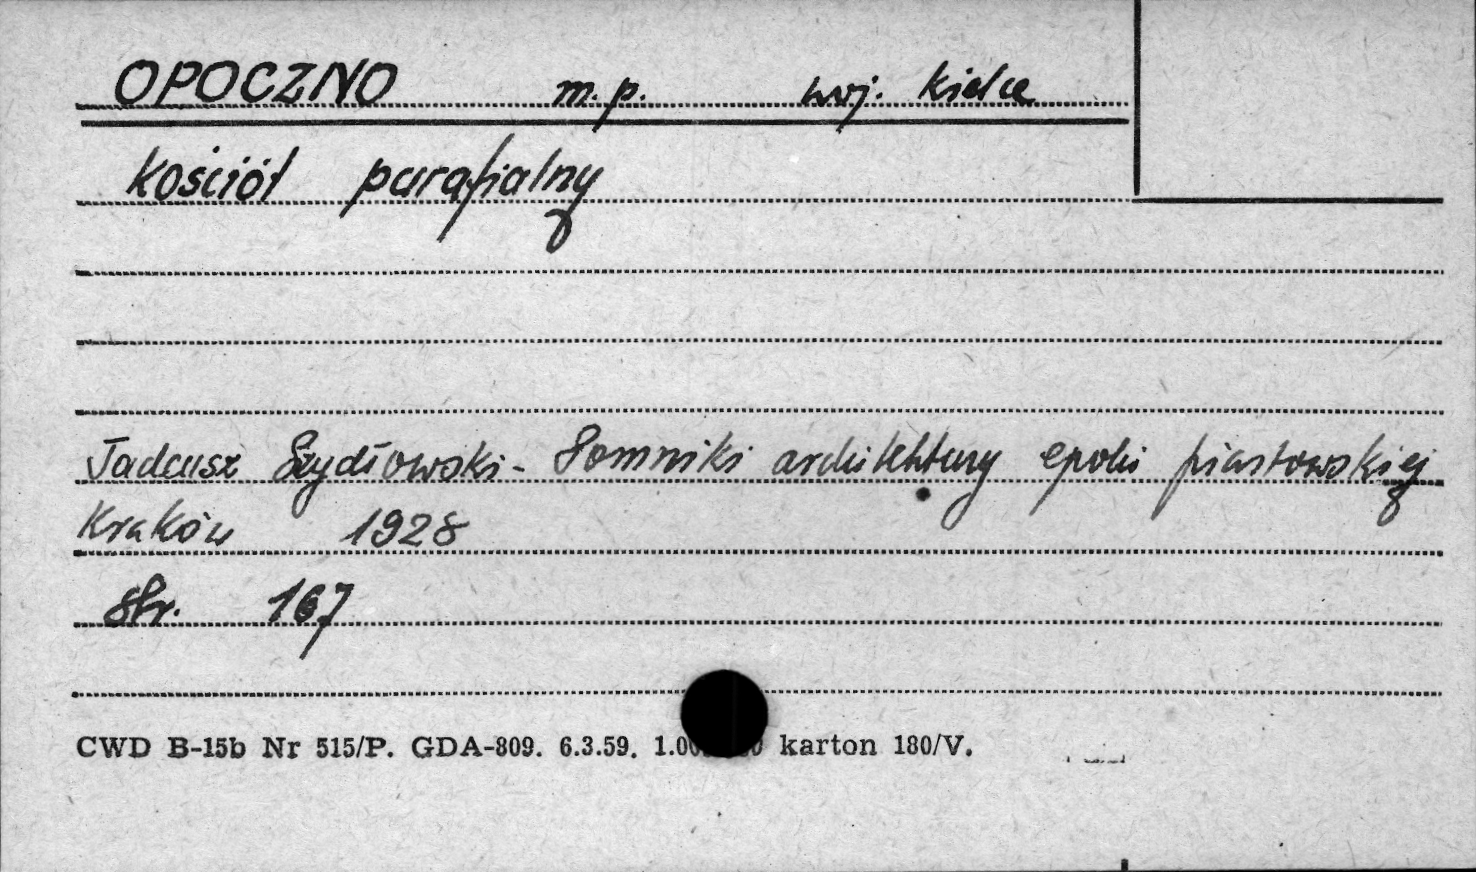 OPOCZNO m.p. woj. Kielce
Kościół parafialny
Tadeusz Szydłowski - Pomniki architektury epoki piastowskiej
Kraków 1928
str. 167
CWD B-15b Nr 515/P. GDA-809. 6.3.59. karton 180/V.